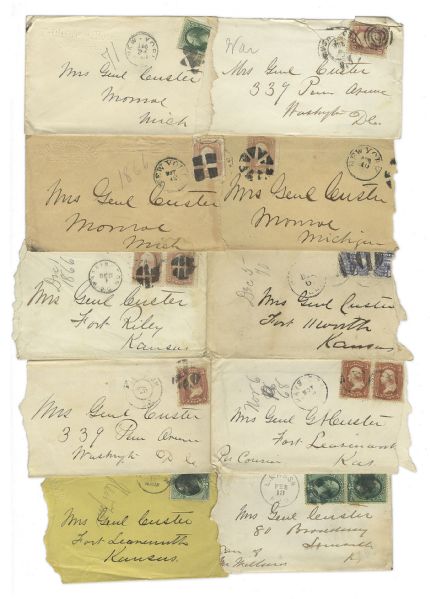 NEW YORK
Mrs Genl Custer
Monroe
Mich
War
Mrs Genl Custer
339 Penn Avenue
Washgtn
D.C.
1866
NEW YORK
Mrs Genl Custer
Monroe
Mich
NEW YORK
Mrs Genl Custer
Monroe
Michigan
1866
DEC
Mrs Genl Custer
Fort Riley
Kansas
Dec 5
Mrs Genl Custer
Fort llworth
Kansas
Mrs Genl Custer
339 Penn Avenue
Washgtn D.C.
Nov 6
68
Mrs Genl G A Custer
Fort Leavenworth
Kas
Per Courier
Mrs Genl Custer
Fort Leavenworth
Kansas
FEB
Mrs Genl Custer
80 Broadway